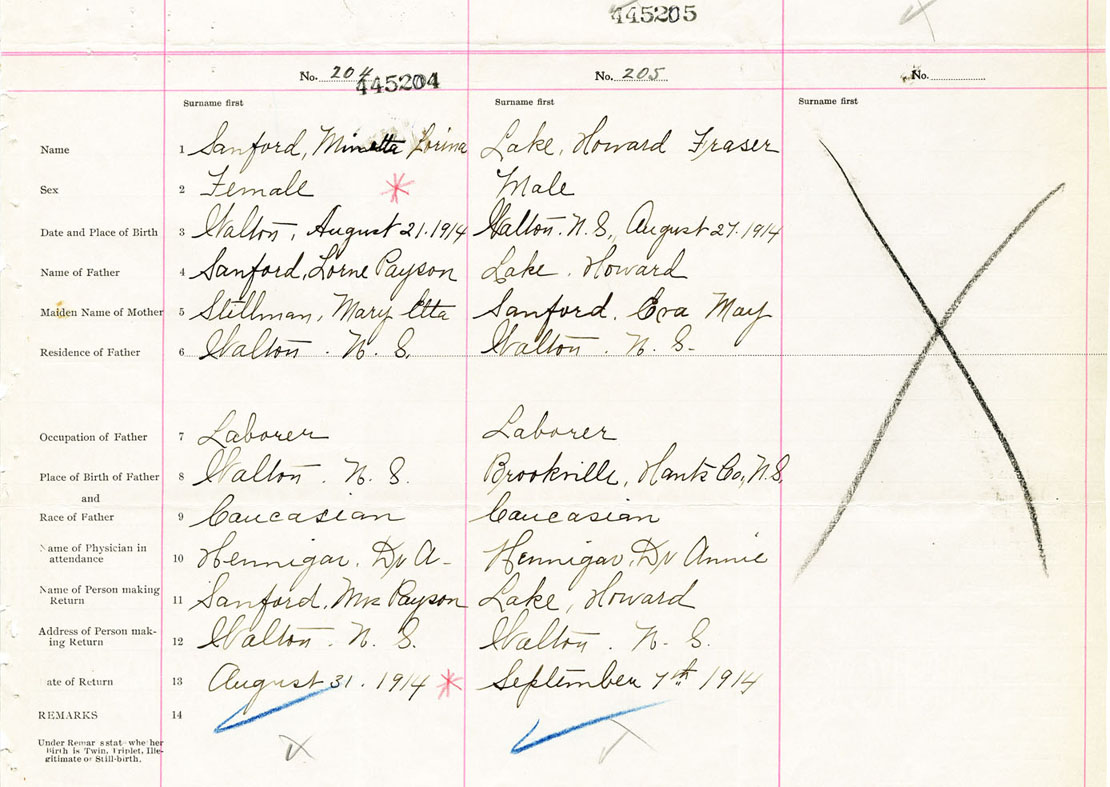 445205
No. 204 No. 205 No.
445204
Surname first Surname first Surname first
Name 1 Sanford, Minetta Lorina Lake, Howard Fraser
Sex 2 Female Male
Date and Place of Birth 3 Walton, August 21. 1914 Walton. N. S., August 27. 1914
Name of Father 4 Sanford, Lorne Payson Lake. Howard
Maiden Name of Mother 5 Stillman, Mary Etta Sanford. Eva May
Residence of Father 6 Walton. N. S. Walton. N. S.
Occupation of Father 7 Laborer Laborer
Place of Birth of Father 8 Walton. N. S. Brookville, Hants Co, N. S.
and
Race of Father 9 Caucasian Caucasian
Name of Physician in
attendance 10 Hennigar. Dr A. Hennigar, Dr Annie
Name of Person making
Return 11 Sanford, Mrs Payson Lake, Howard
Address of Person mak-
ing Return 12 Walton. N. S. Walton. N. S.
ate of Return 13 August 31. 1914 September 7th 1914
REMARKS 14
Under Remar s stat whe her
Birth is Twin, Triplet, Ille-
gitimate or Still-birth.